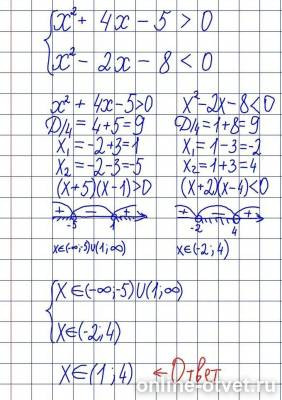 x² + 4x - 5 > 0
x² - 2x - 8 < 0
x² + 4x - 5 > 0
D/4 = 4+5 = 9
x₁ = -2+3 = 1
x₂ = -2-3 = -5
(x+5)(x-1) > 0
+ - +
-5 1
x∈(-∞;-5)∪(1;∞)
x² - 2x - 8 < 0
D/4 = 1+8 = 9
x₁ = 1-3 = -2
x₂ = 1+3 = 4
(x+2)(x-4) < 0
+ - +
-2 4
x∈(-2;4)
x∈(-∞;-5)∪(1;∞)
x∈(-2;4)
x∈(1;4) ← Ответ
online-otvet.ru